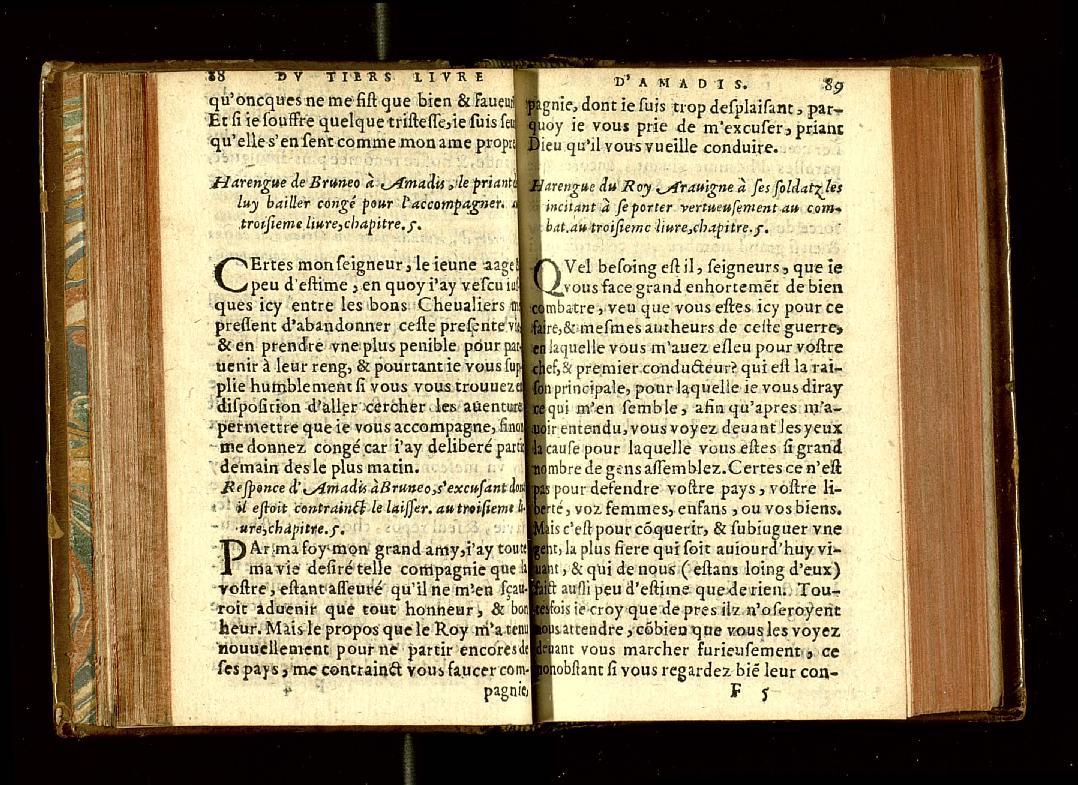 88 DV TIERS LIVRE
qu'oncques ne me fiſt que bien & faueur
Et ſi ie ſouffre quelque triſteſſe, ie ſuis ſeu
qu'elle s'en ſent comme mon ame propre
Harengue de Bruneo à Amadis, le priant
luy bailler congé pour l'accompagner. a
troiſieme liure, chapitre. 5.
CErtes mon ſeigneur, le ieune aage
peu d'eſtime, en quoy i'ay veſcu iuſ
ques icy entre les bons Cheualiers m
preſſent d'abandonner ceſte preſente vie
& en prendre vne plus penible pour par
uenir à leur reng, & pourtant ie vous ſup
plie humblement ſi vous vous trouuez e
diſpoſition d'aller cercher les auenture
permettre que ie vous accompagne, ſinon
me donnez congé car i'ay deliberé parti
demain des le plus matin.
Reſponce d'Amadis à Bruneo, s'excuſant dou
il eſtoit contrainct le laiſſer. au troiſieme li-
ure, chapitre. 5.
PAr ma foy mon grand amy, i'ay toute
ma vie deſiré telle compagnie que la
voſtre, eſtant aſſeuré qu'il ne m'en ſçau-
roit aduenir que tout honneur, & bon
heur. Mais le propos que le Roy m'a tenu
nouuellement pour ne partir encores de
ſes pays, me contrainct vous faucer com-
pagnie,
D'AMADIS. 89
pagnie, dont ie ſuis trop deſplaiſant, par-
quoy ie vous prie de m'excuſer, priant
Dieu qu'il vous vueille conduire.
Harengue du Roy Arauigne à ſes ſoldatz les
incitant à ſe porter vertueuſement au com-
bat. au troiſieme liure, chapitre. 5.
QVel beſoing eſt il, ſeigneurs, que ie
vous face grand enhortemēt de bien
combatre, veu que vous eſtes icy pour ce
faire, & meſmes autheurs de ceſte guerre,
en laquelle vous m'auez eſleu pour voſtre
chef, & premier conducteur? qui eſt la rai-
ſon principale, pour laquelle ie vous diray
ce qui m'en ſemble, afin qu'apres m'a-
uoir entendu, vous voyez deuant les yeux
la cauſe pour laquelle vous eſtes ſi grand
nombre de gens aſſemblez. Certes ce n'eſt
pas pour defendre voſtre pays, voſtre li-
berté, voz femmes, enfans, ou vos biens.
Mais c'eſt pour cōquerir, & ſubiuguer vne
gent, la plus fiere qui ſoit auiourd'huy vi-
uant, & qui de nous (eſtans loing d'eux)
faict auſſi peu d'eſtime que de rien. Tou-
tesfois ie croy que de pres ilz n'oſeroyent
nous attendre, cōbien que vous les voyez
deuant vous marcher furieuſement, ce
nonobſtant ſi vous regardez biē leur con-
F 5